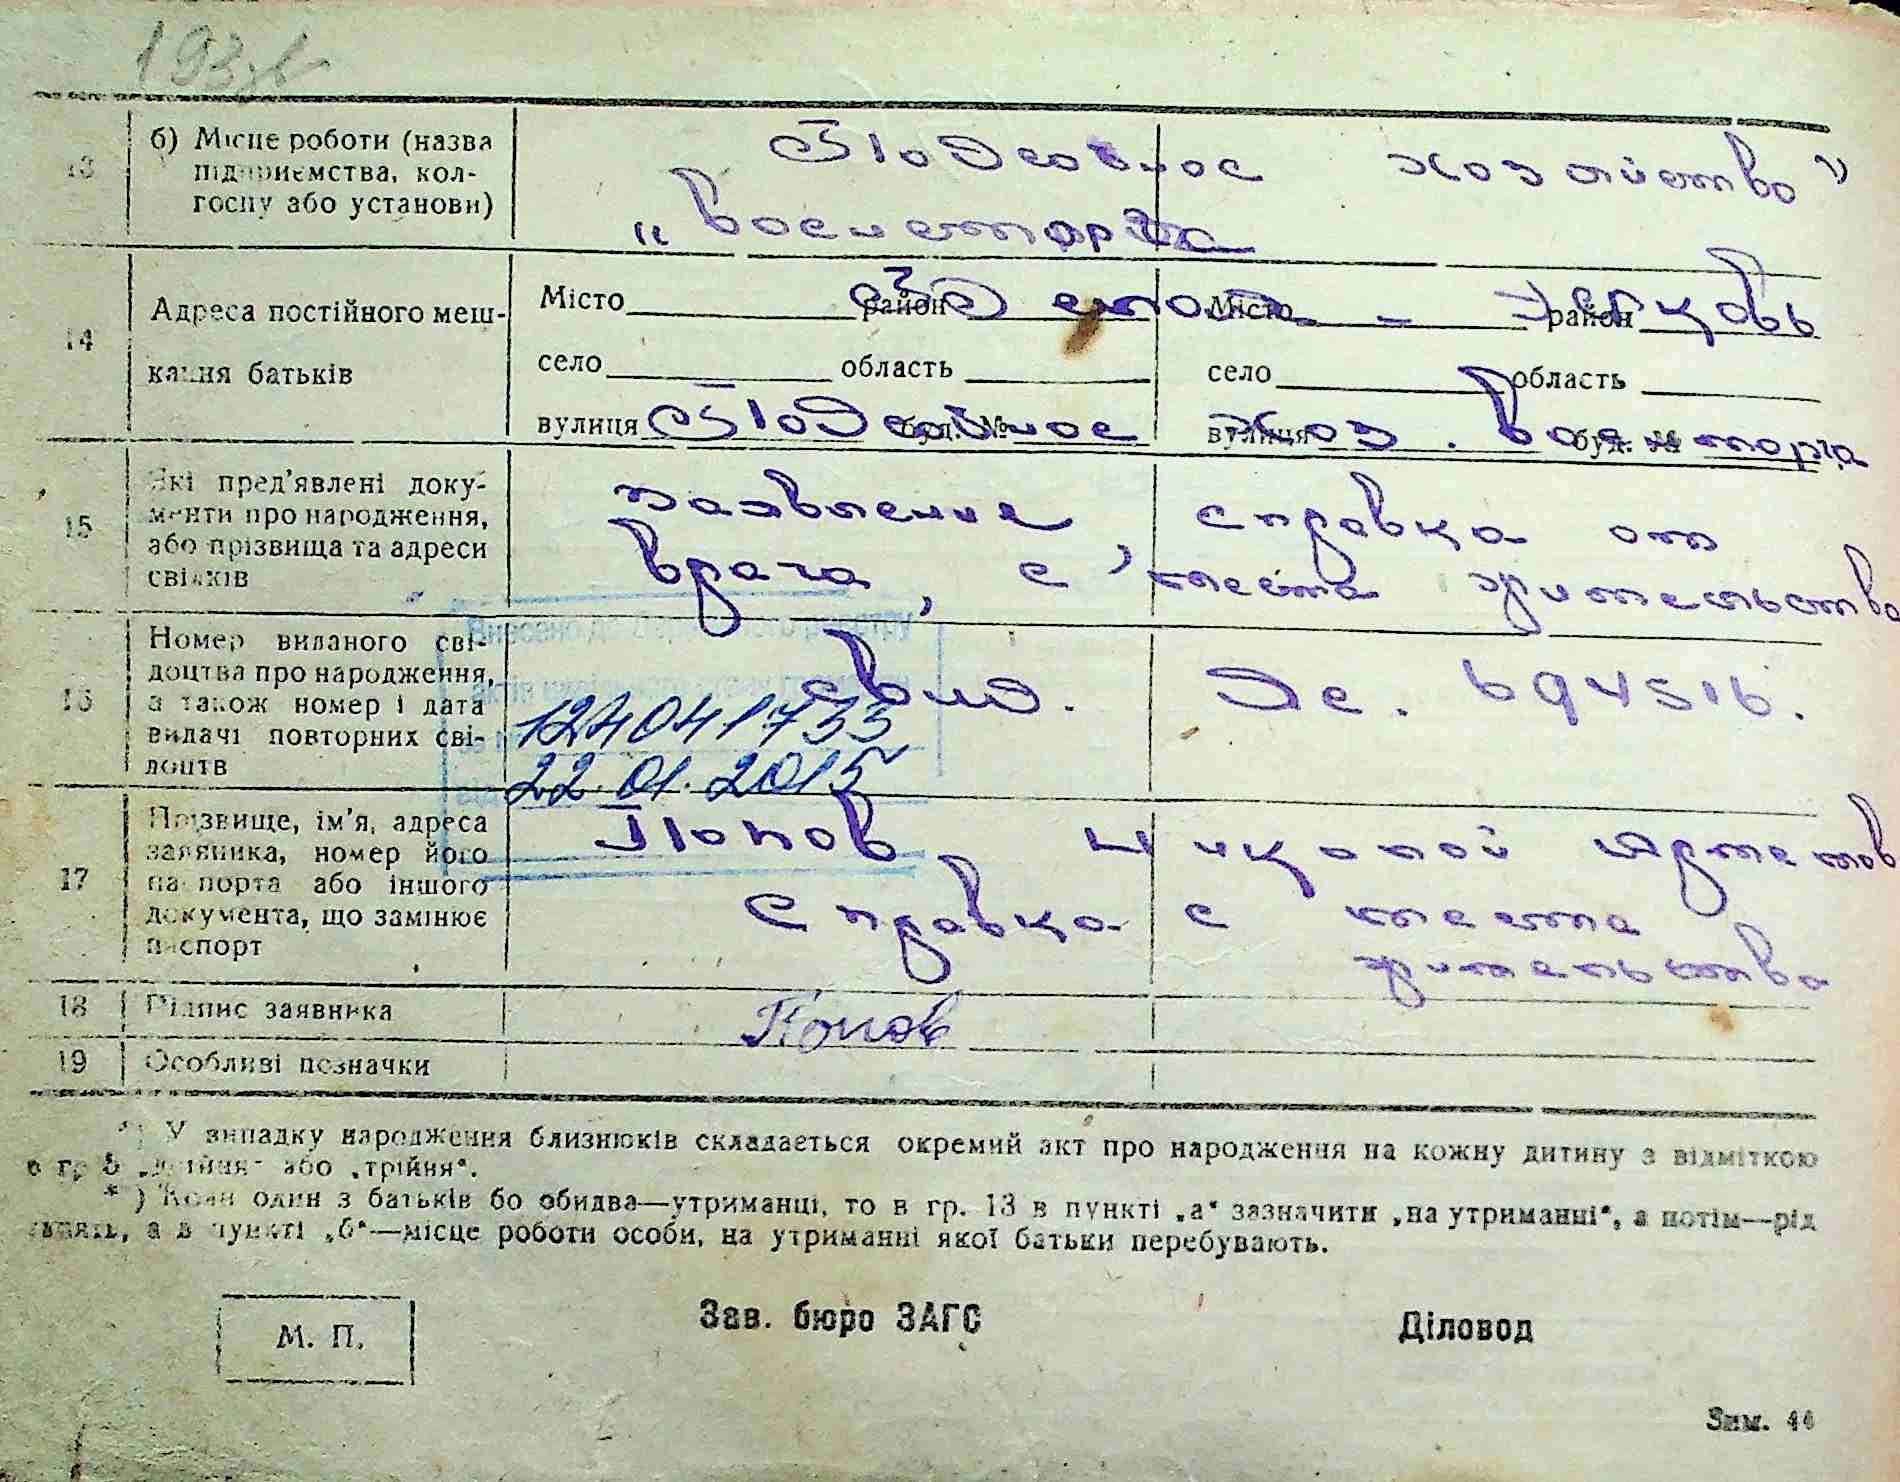 193
13 б) Місце роботи (назва
підприємства, кол-
госпу або установи)
Подсобное хозяйство"
„Военторга
14 Адреса постійного меш-
кання батьків
Місто район Місто район
село область село область
вулиця буд. № вулиця буд. №
Подсобное хоз. Военторга
15 Які пред'явлені доку-
менти про народження,
або прізвища та адреси
свідків
Заявление, справка от
врача, с места жительства
16 Номер виданого сві-
доцтва про народження,
а також номер і дата
видачі повторних сві-
доцтв
свид. 694516.
124041733
22.01.2015
17 Прізвище, ім'я, адреса
заявника, номер його
паспорта або іншого
документа, що замінює
паспорт
Попов Николай
Справка с места
жительства
18 Підпис заявника
Попов
19 Особливі позначки
*) У випадку народження близнюків складається окремий акт про народження на кожну дитину з відміткою
в гр. 5 „двійня" або „трійня".
**) Коли один з батьків бо обидва—утриманці, то в гр. 13 в пункті „а" зазначити „на утриманні", а потім—рід
занять, а в пункті „б"—місце роботи особи, на утриманні якої батьки перебувають.
М. П.
Зав. бюро ЗАГС
Діловод
Зим. 44